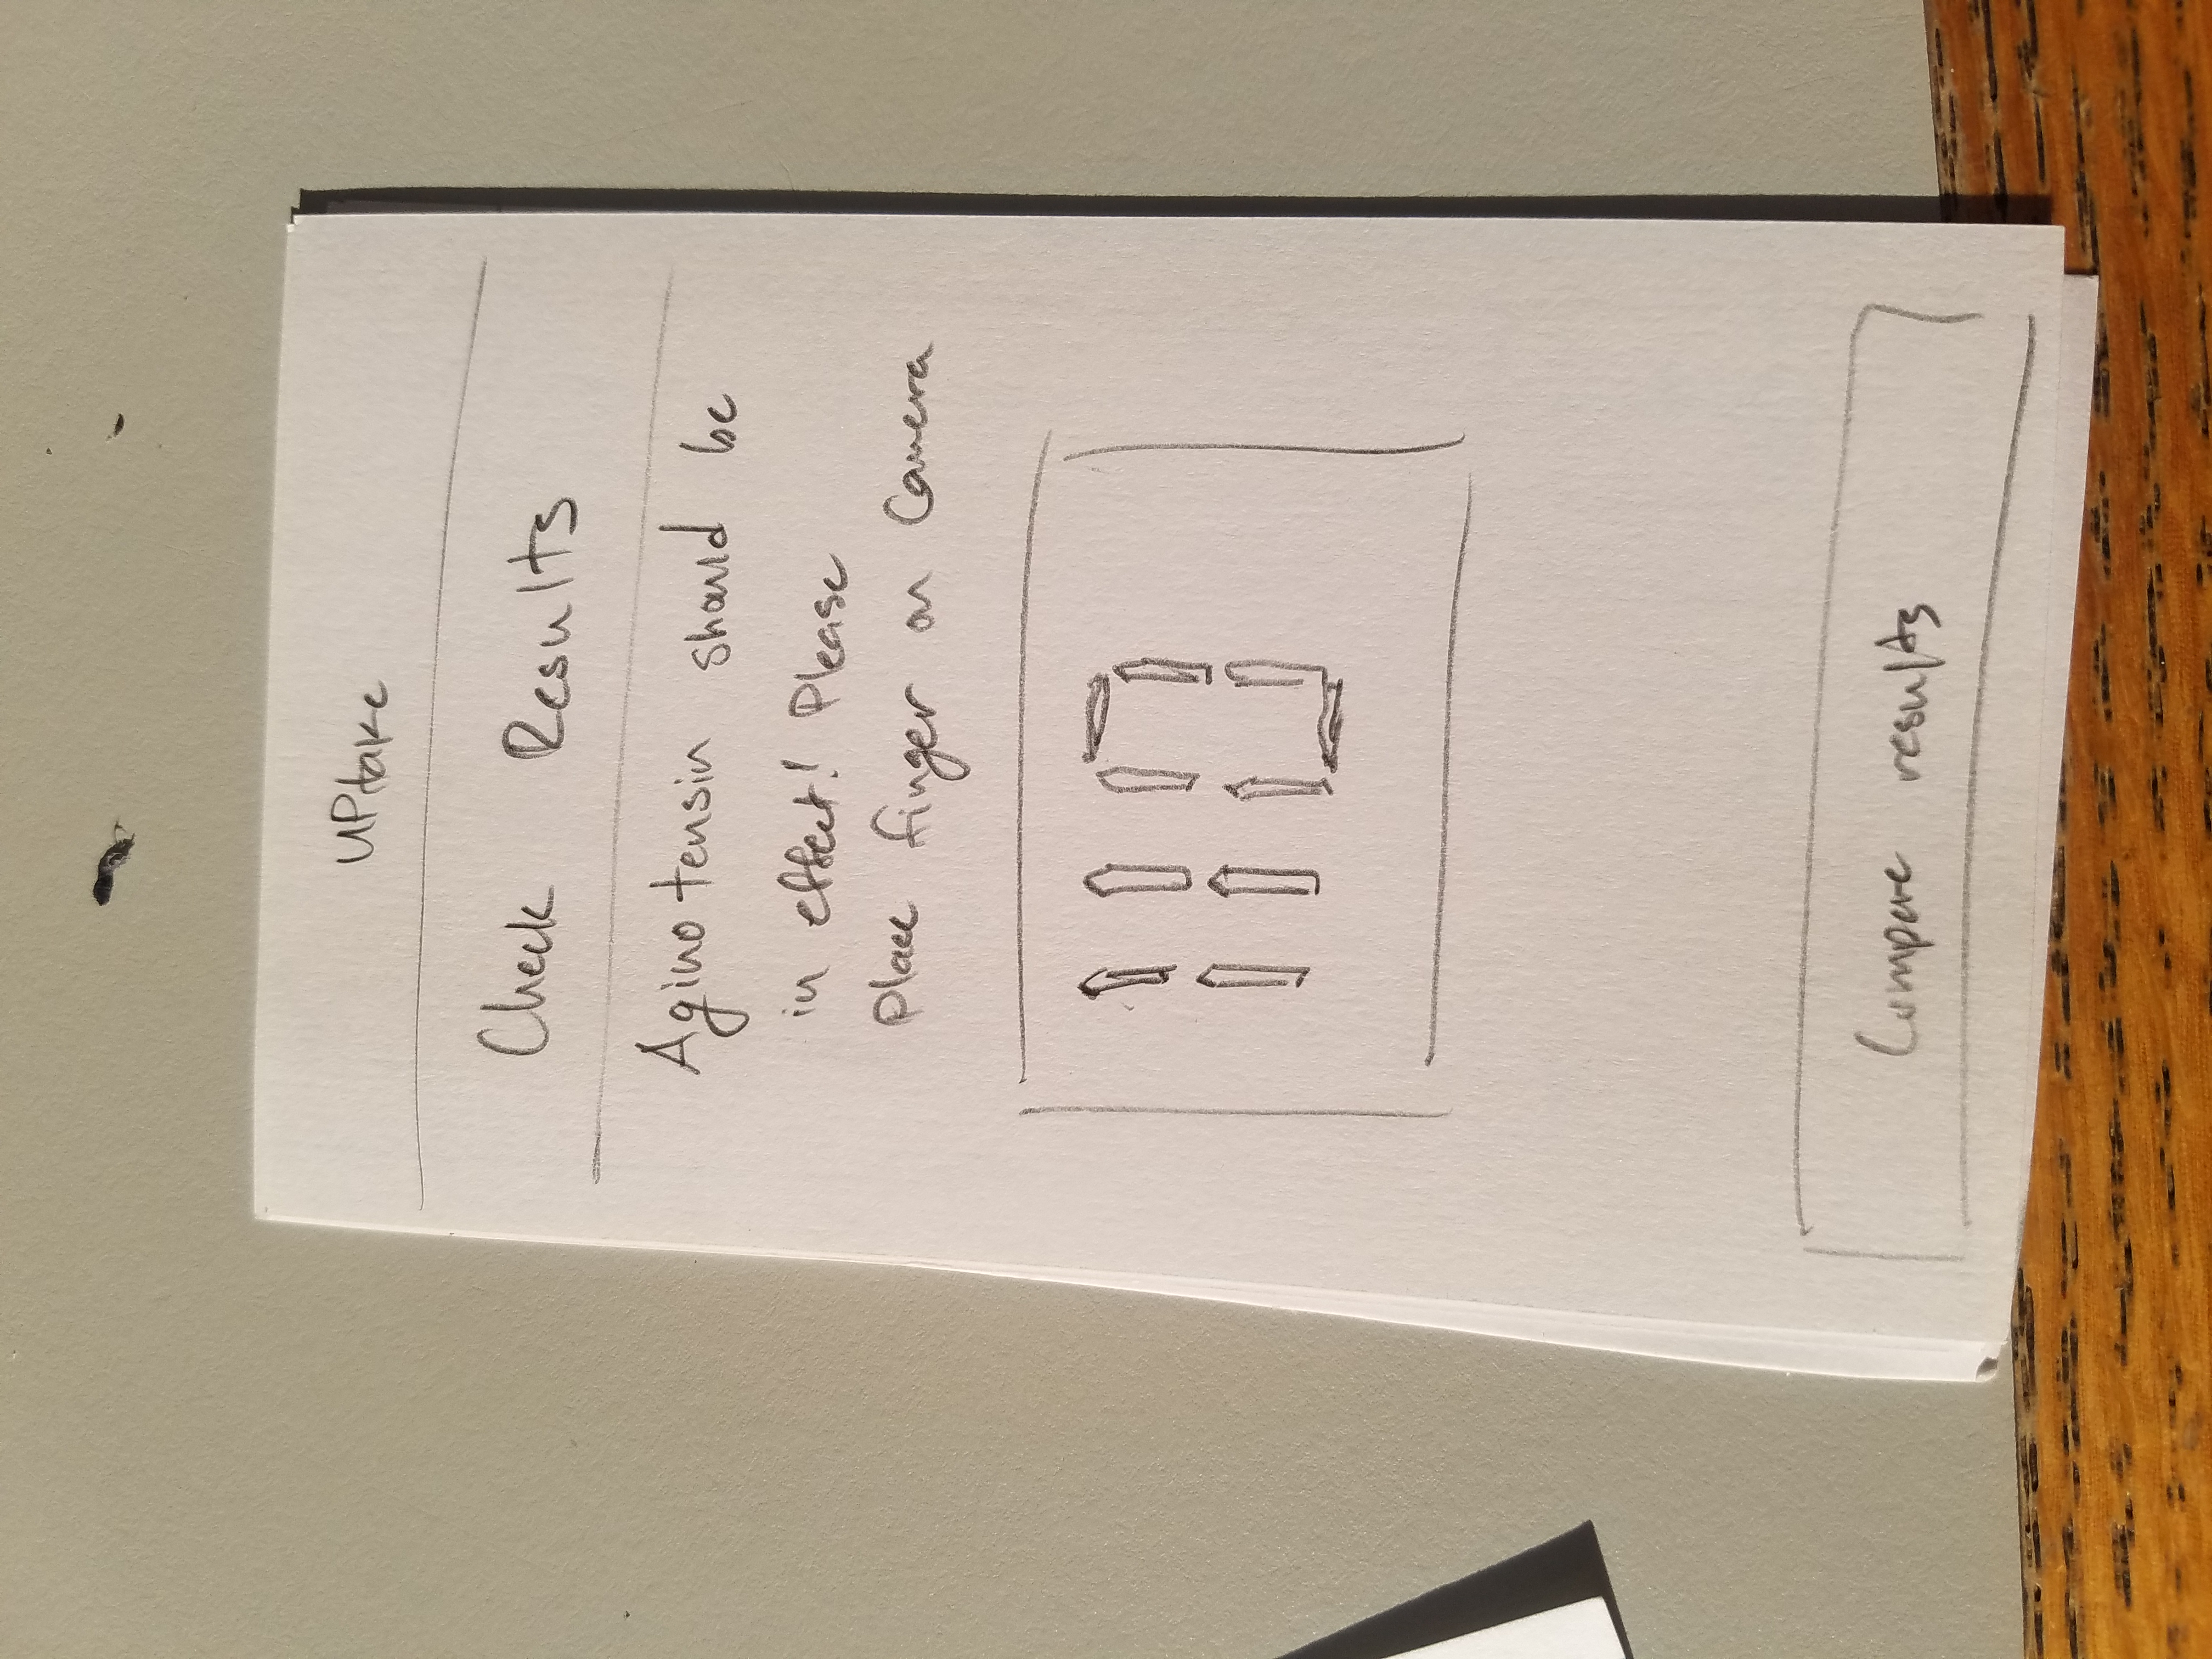 UPtake
Check Results
Aginotensin should be
in effect! Please
Place finger on Camera
110
Compare results